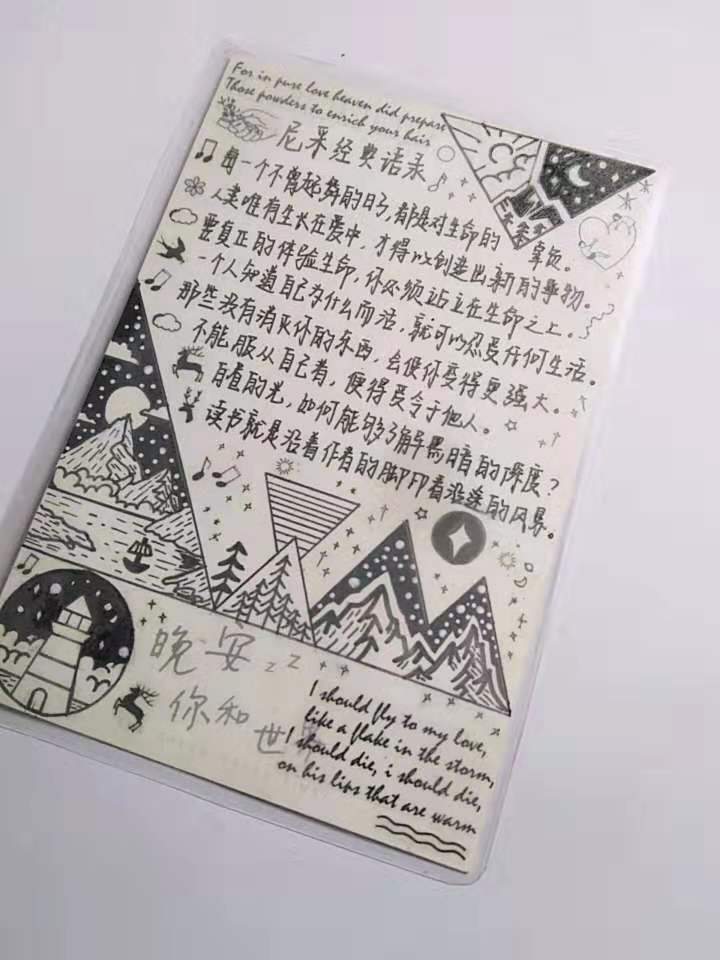 For in pure love heaven did prepare
Those powders to enrich your hair
尼采经典语录
每一个不曾起舞的日子,都是对生命的辜负。
人类唯有生长在爱中,才得以创造出新的事物。
要真正的体验生命,你必须站立在生命之上。
一个人知道自己为什么而活,就可以忍受任何生活。
那些没有消灭你的东西,会使你变得更强大。
不能服从自己者,便得受令于他人。
白昼的光,如何能够了解黑暗的深度?
读书就是沿着作者的脚印看沿途的风景。
晚安zz
你和世界
I should fly to my love,
like a flake in the storm,
I should die, i should die,
on his lips that are warm